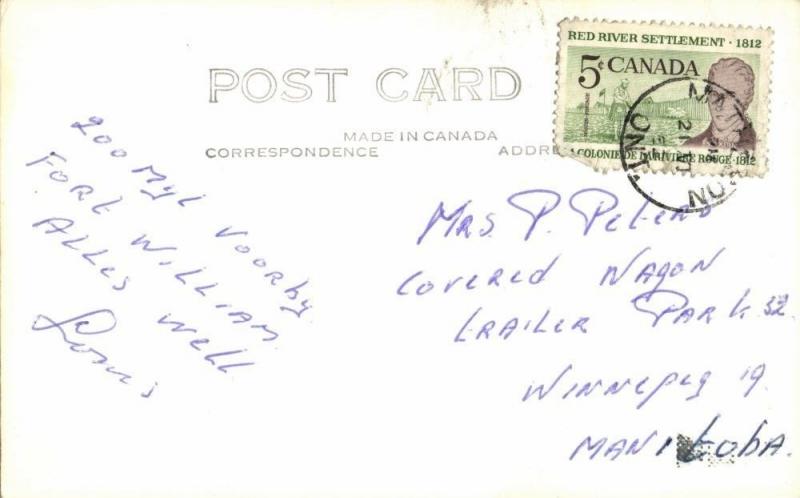 POST CARD
MADE IN CANADA
CORRESPONDENCE
RED RIVER SETTLEMENT · 1812
5¢ CANADA
COLONIE DE LA RIVIÈRE ROUGE · 1812
ONT.
200 Myl voorby
Fort William
Alles well
Louis
Mrs P. Peters
Covered Wagon
trailer Park 32
Winnepeg 19.
MANitobA.